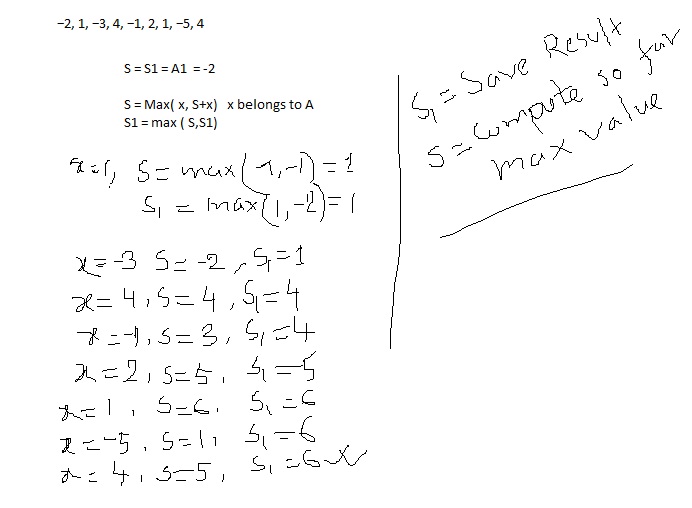 −2, 1, −3, 4, −1, 2, 1, −5, 4
S = S1 = A1 = -2
S = Max( x, S+x) x belongs to A
S1 = max ( S,S1)
x=1, S = max(1,-1) = 1
S1 = max(1,-2) = 1
x=-3 S=-2, S1=1
x=4, S=4, S1=4
x=-1, S=3, S1=4
x=2, S=5, S1=5
x=1, S=6, S1=6
x=-5, S=1, S1=6
x=4, S=5, S1=6
S1 = Save Result
S = Compute so far
max value